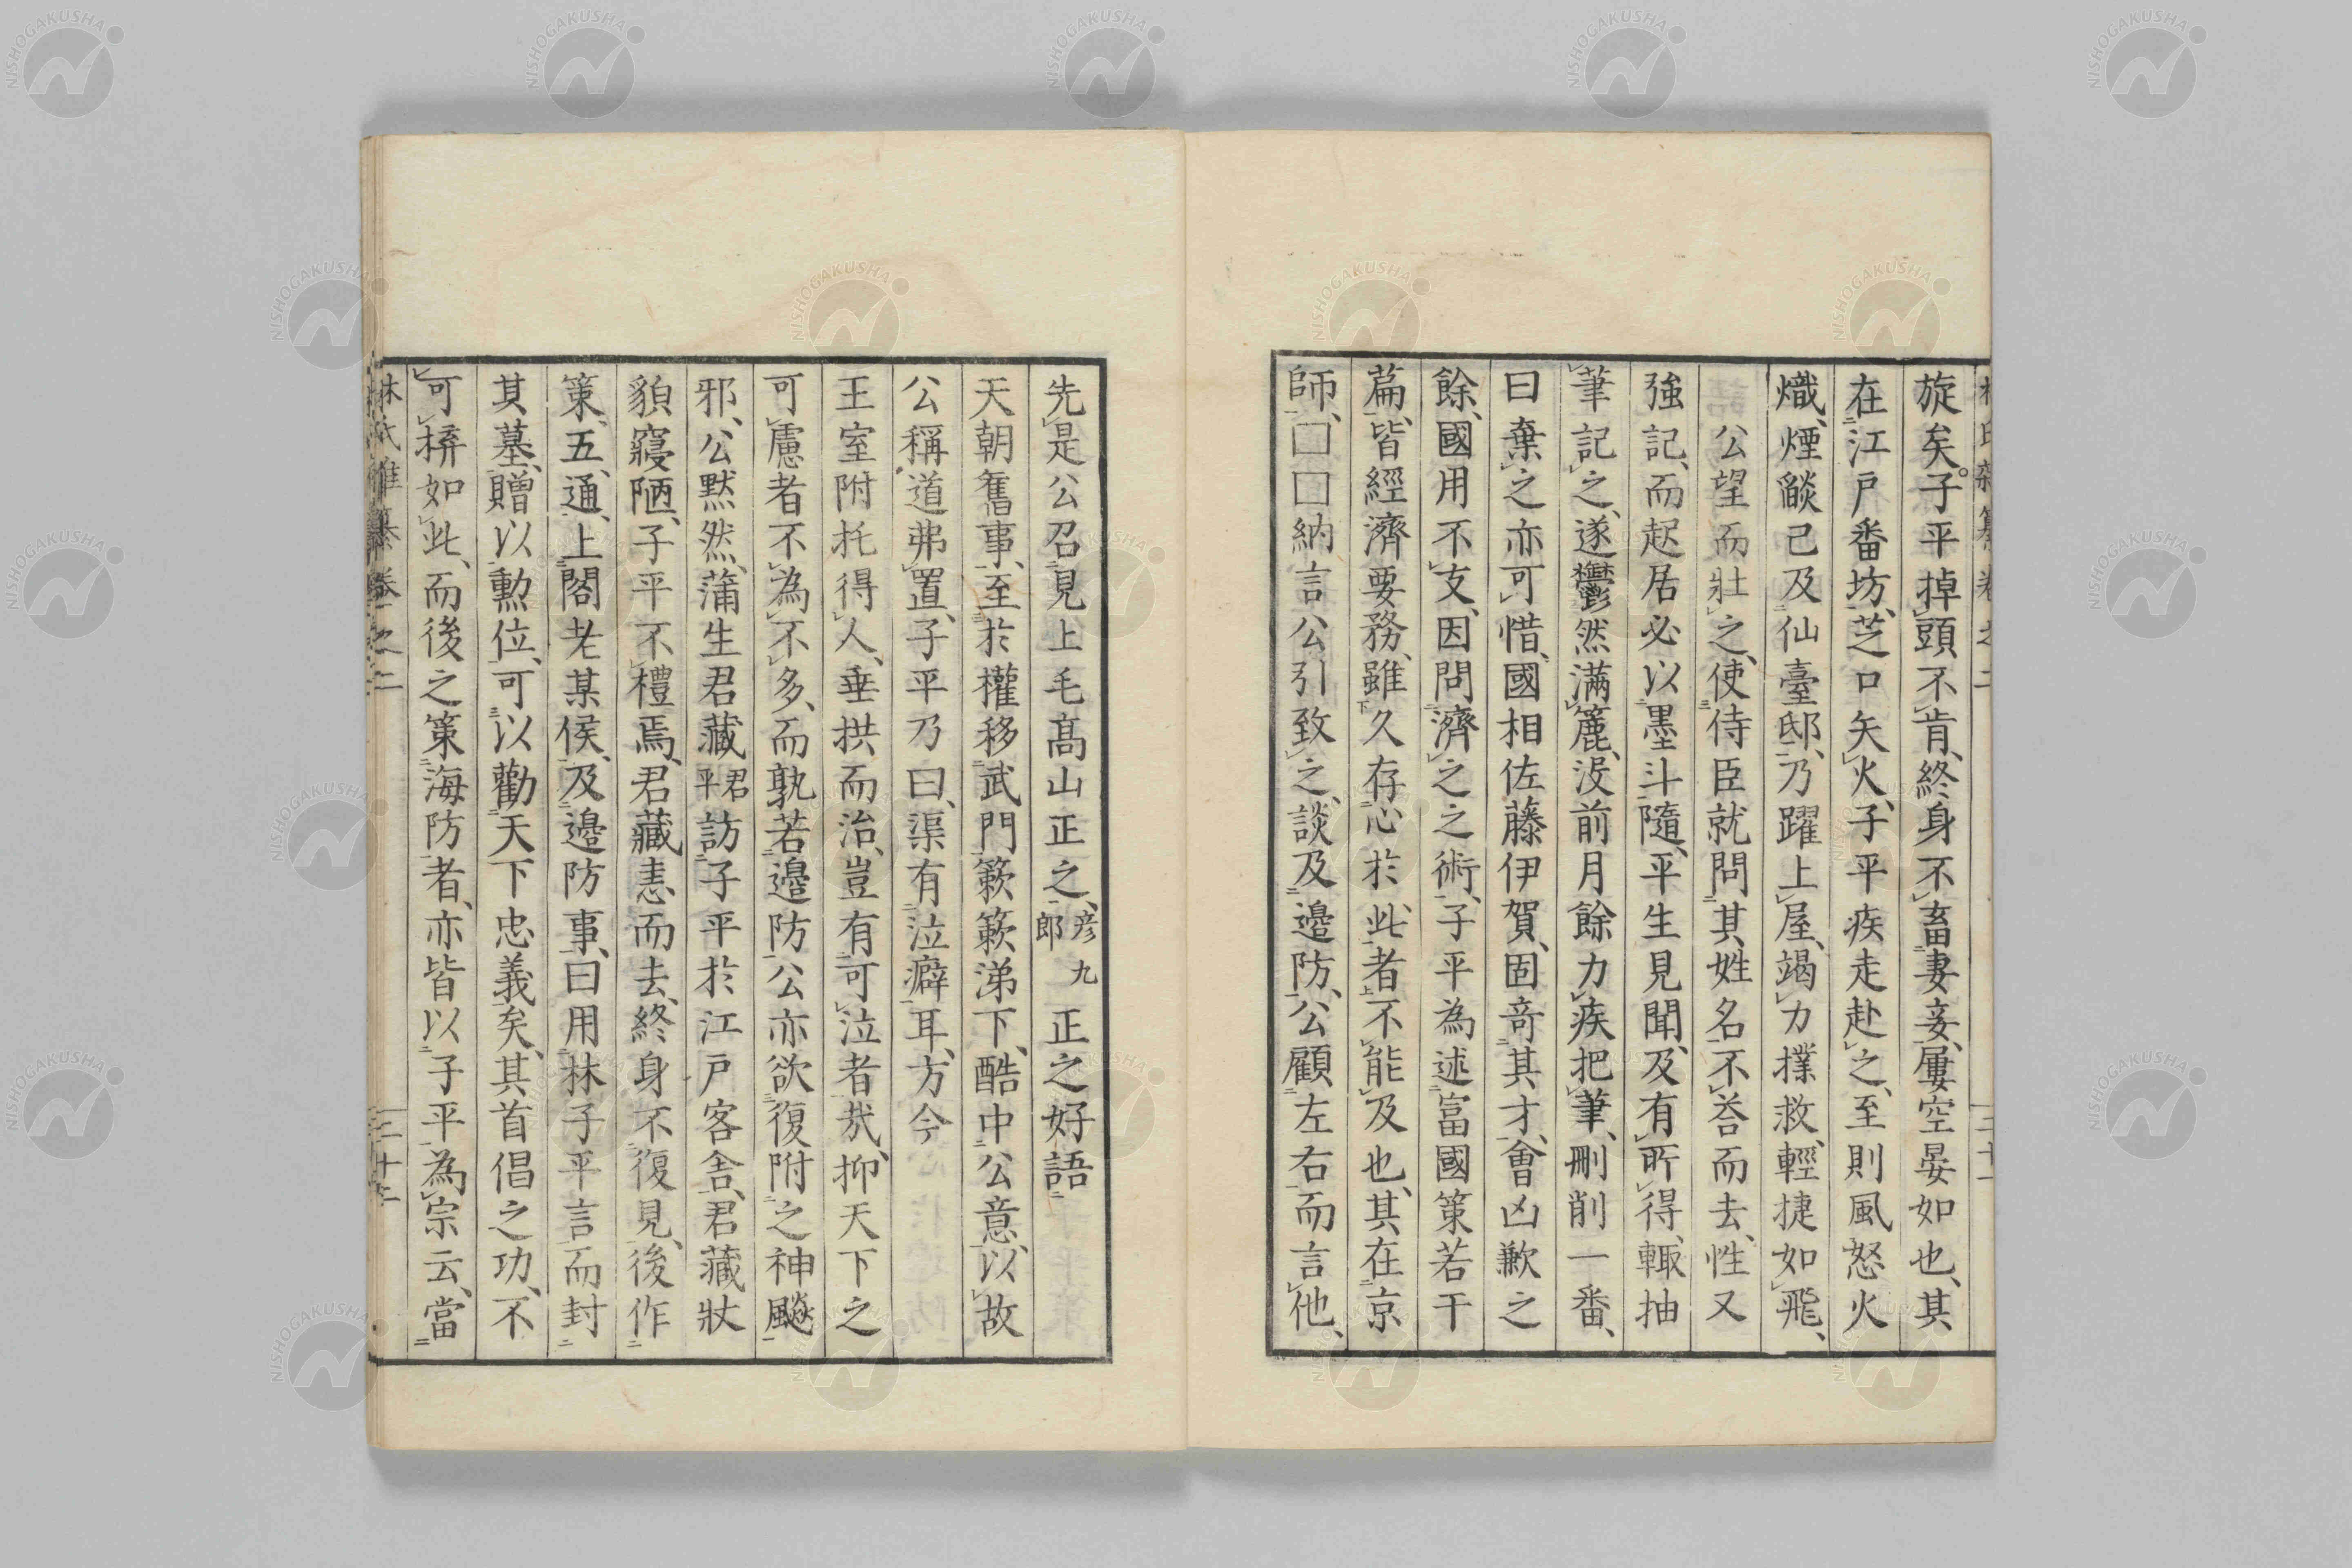 旋矣。子平掉頭不肯、終身不畜妻妾、屢空晏如也、其
在江戸番坊、芝口矢火、子平疾走赴之、至則風怒火
熾、煙燄已及仙臺邸、乃躍上屋、竭力撲救、輕捷如飛、
公望而壯之、使侍臣就問其姓名、不荅而去、性又
強記、而起居必以墨斗隨、平生見聞、及有所得、輙抽
筆記之、遂鬱然満簏、没前月餘、力疾把筆、刪削一番、
曰棄之亦可惜、國相佐藤伊賀、固竒其才、會凶歉之
餘、國用不支、因問濟之之術、子平為述富國策若干
篇、皆經濟要務、雖久存心於此者、不能及也、其在京
師、□□納言公引致之、談及邊防、公顧左右而言他、
先是公召見上毛髙山正之、彦九郎 正之好語
天朝舊事、至於權移武門、簌簌涕下、酷中公意、以故
公稱道弗置、子平乃曰、渠有泣癖耳、方今
王室附托得人、垂拱而治、豈有可泣者哉、抑天下之
可慮者不為不多、而孰若邊防、公亦欲復附之神飈
邪、公黙然、蒲生君藏 君平 訪子平於江戸客舎、君藏狀
貌寢陋、子平不禮焉、君藏恚而去、終身不復見、後作
策五通、上閣老某侯、及邊防事、曰用林子平言、而封
其墓、贈以勲位、可以勸天下忠義矣、其首倡之功、不
可揜如此、而後之策海防者、亦皆以子平為宗云、當
林氏雜纂 卷之二